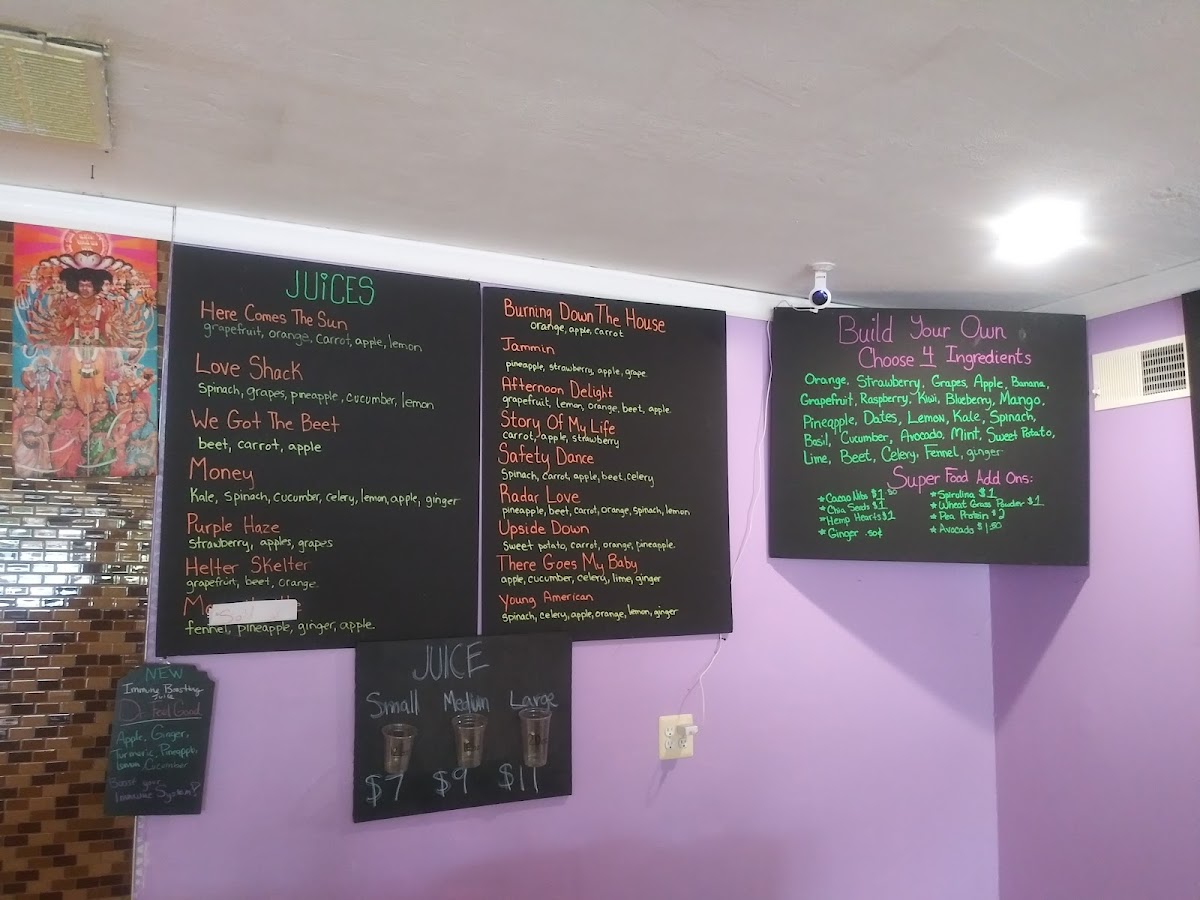 JUiCES
Here Comes The Sun
grapefruit, orange, carrot, apple, lemon
Love Shack
Spinach, grapes, pineapple, cucumber, lemon
We Got The Beet
beet, carrot, apple
Money
Kale, spinach, cucumber, celery, lemon, apple, ginger
Purple Haze
Strawberry, apples, grapes
Helter Skelter
grapefruit, beet, orange.
fennel, pineapple, ginger, apple
Burning Down The House
orange, apple, carrot
Jammin
pineapple, strawberry, apple, grape
Afternoon Delight
grapefruit, lemon, orange, beet, apple
Story Of My Life
carrot, apple, strawberry
Safety Dance
Spinach, carrot, apple, beet, celery
Radar Love
pineapple, beet, carrot, orange, spinach, lemon
Upside Down
Sweet potato, carrot, orange, pineapple
There Goes My Baby
apple, cucumber, celery, lime, ginger
Young American
spinach, celery, apple, orange, lemon, ginger
Build Your Own
Choose 4 Ingredients
Orange, Strawberry, Grapes, Apple, Banana,
Grapefruit, Raspberry, Kiwi, Blueberry, Mango,
Pineapple, Dates, Lemon, Kale, Spinach,
Basil, Cucumber, Avocado, Mint, Sweet Potato,
Lime, Beet, Celery, Fennel, ginger
Super Food Add Ons:
*Cacao Nibs $1.50
*Chia Seeds $1
*Hemp Hearts $1
*Ginger .50¢
*Spirulina $1
*Wheat Grass Powder $1
*Pea Protein $2
*Avocado $1.50
JUICE
Small Medium Large
$7 $9 $11
NEW
Immune Boosting
Juice
Dr. Feel Good
Apple, Ginger,
Turmeric, Pineapple,
Lemon, Cucumber
Boost your
Immune System!